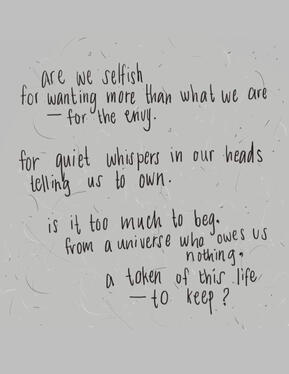 are we selfish
for wanting more than what we are
— for the envy.
for quiet whispers in our heads
telling us to own.
is it too much to beg.
from a universe who owes us
nothing.
a token of this life
— to keep?